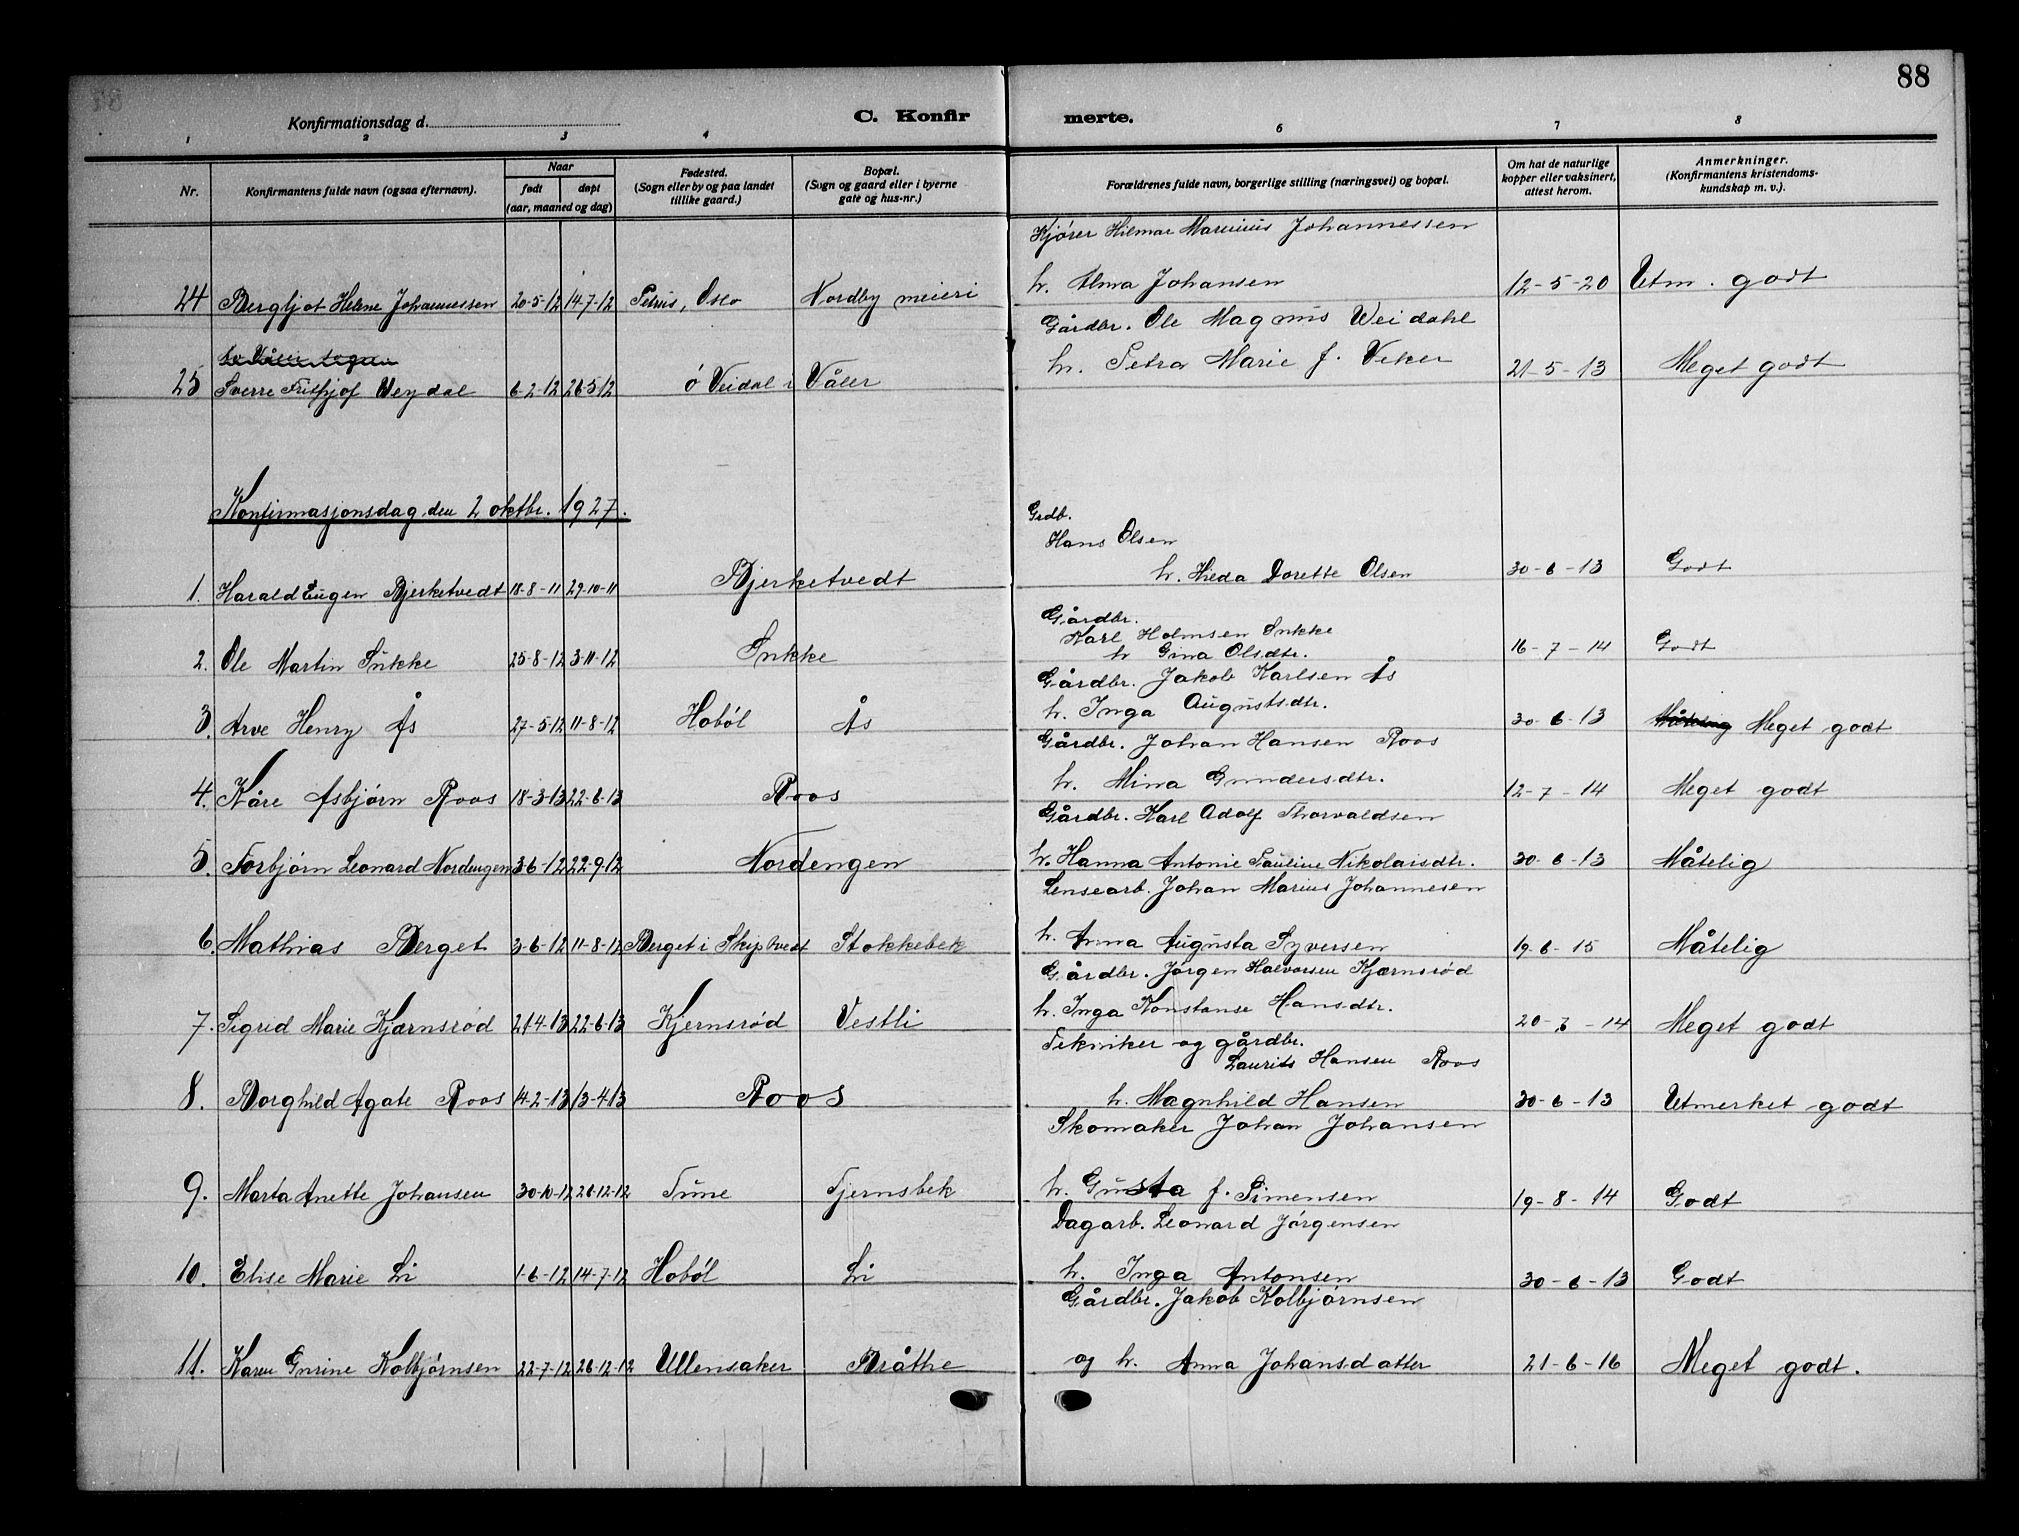 88
Konfirmationsdag d.
C. Konfirmerte.
1 2 3 4 6 7 8
Nr. Konfirmantens fulde navn (ogsaa efternavn). Naar født døpt (aar, maaned og dag) Fødested. (Sogn eller by og paa landet tillike gaard.) Bopæl. (Sogn og gaard eller i byerne gate og hus-nr.) Forældrenes fulde navn, borgerlige stilling (næringsvei) og bopæl. Om hat de naturlige kopper eller vaksinert, attest herom. Anmerkninger. (Konfirmantens kristendoms-kundskap m. v.).
Kjører Hilmar Marinius Johannessen
24 Bergljot Helene Johannessen 20-5-12 14-7-12 Petrus, Oslo Nordby meieri h. Alma Johansen 12-5-20 Utm. godt
Gårdbr. Ole Magnus Weidahl
25 Sverre Fritjof Veydal 6-2-12 26-5-12 ó Veidal i Våler h. Petra Marie f. Veker 21-5-13 Meget godt
Konfirmasjonsdag den 2 oktbr. 1927.
Grdb.
Hans Olsen
1. Harald Eugen Bjerketvedt 18-8-11 29-10-11 Bjerketvedt h. Hilda Dorette Olsen 30-6-13 Godt
Gårdbr.
Karl Holmsen Sukke
2. Ole Martin Sukke 25-8-12 3-11-12 Sukke h Gina Olsdtr. 16-7-14 Godt
Gårdbr. Jakob Karlsen Ås
3. Arve Henry Ås 27-5-12 11-8-12 Hobøl Ås h. Inga Augustsdtr. 30-6-13 Måtelig Meget godt
Gårdbr. Johan Hansen Roos
4. Kåre Asbjørn Roos 18-3-13 22-6-13 Roos h. Mina Gundersdtr. 12-7-14 Meget godt
Gårdbr. Karl Adolf Thorvaldsen
5. Torbjørn Leonard Nordengen 3-6-12 22-9-12 Nordengen h. Hanna Antonie Pauline Nikolaisdtr. 30-6-13 Måtelig
Lensearb. Johan Marius Johannesen
6. Mathias Berget 3-6-12 11-8-12 Berget i Skiptvedt Stokkebek h. Anna Augusta Syversen 19-6-15 Måtelig
Gårdbr. Jørgen Halvorsen Kjærnsrød
7. Sigrid Marie Kjærnsrød 21-4-13 22-6-13 Kjernsrød Vestli h. Inga Konstanse Hansdtr. 20-6-14 Meget godt
Tekniker og gårdbr.
Laurits Hansen Roos
8. Borghild Agate Roos 14-2-13 13-4-13 Roos h. Magnhild Hansen 30-6-13 Utmerket godt
Skomaker Johan Johansen
9. Marta Anette Johansen 30-10-12 26-12-12 Tune Tjernsbek h. Gusta f. Simensen 19-8-14 Godt
Dagarb. Leonard Jørgensen
10. Elise Marie Li 1-6-12 14-7-12 Hobøl Li h. Inga Antonsen 30-6-13 Godt
Gårdbr. Jakob Kolbjørnsen
11. Karen Gurine Kolbjørnsen 22-7-12 26-12-12 Ullensaker Bråthe og h. Anna Johansdatter 21-6-16 Meget godt.